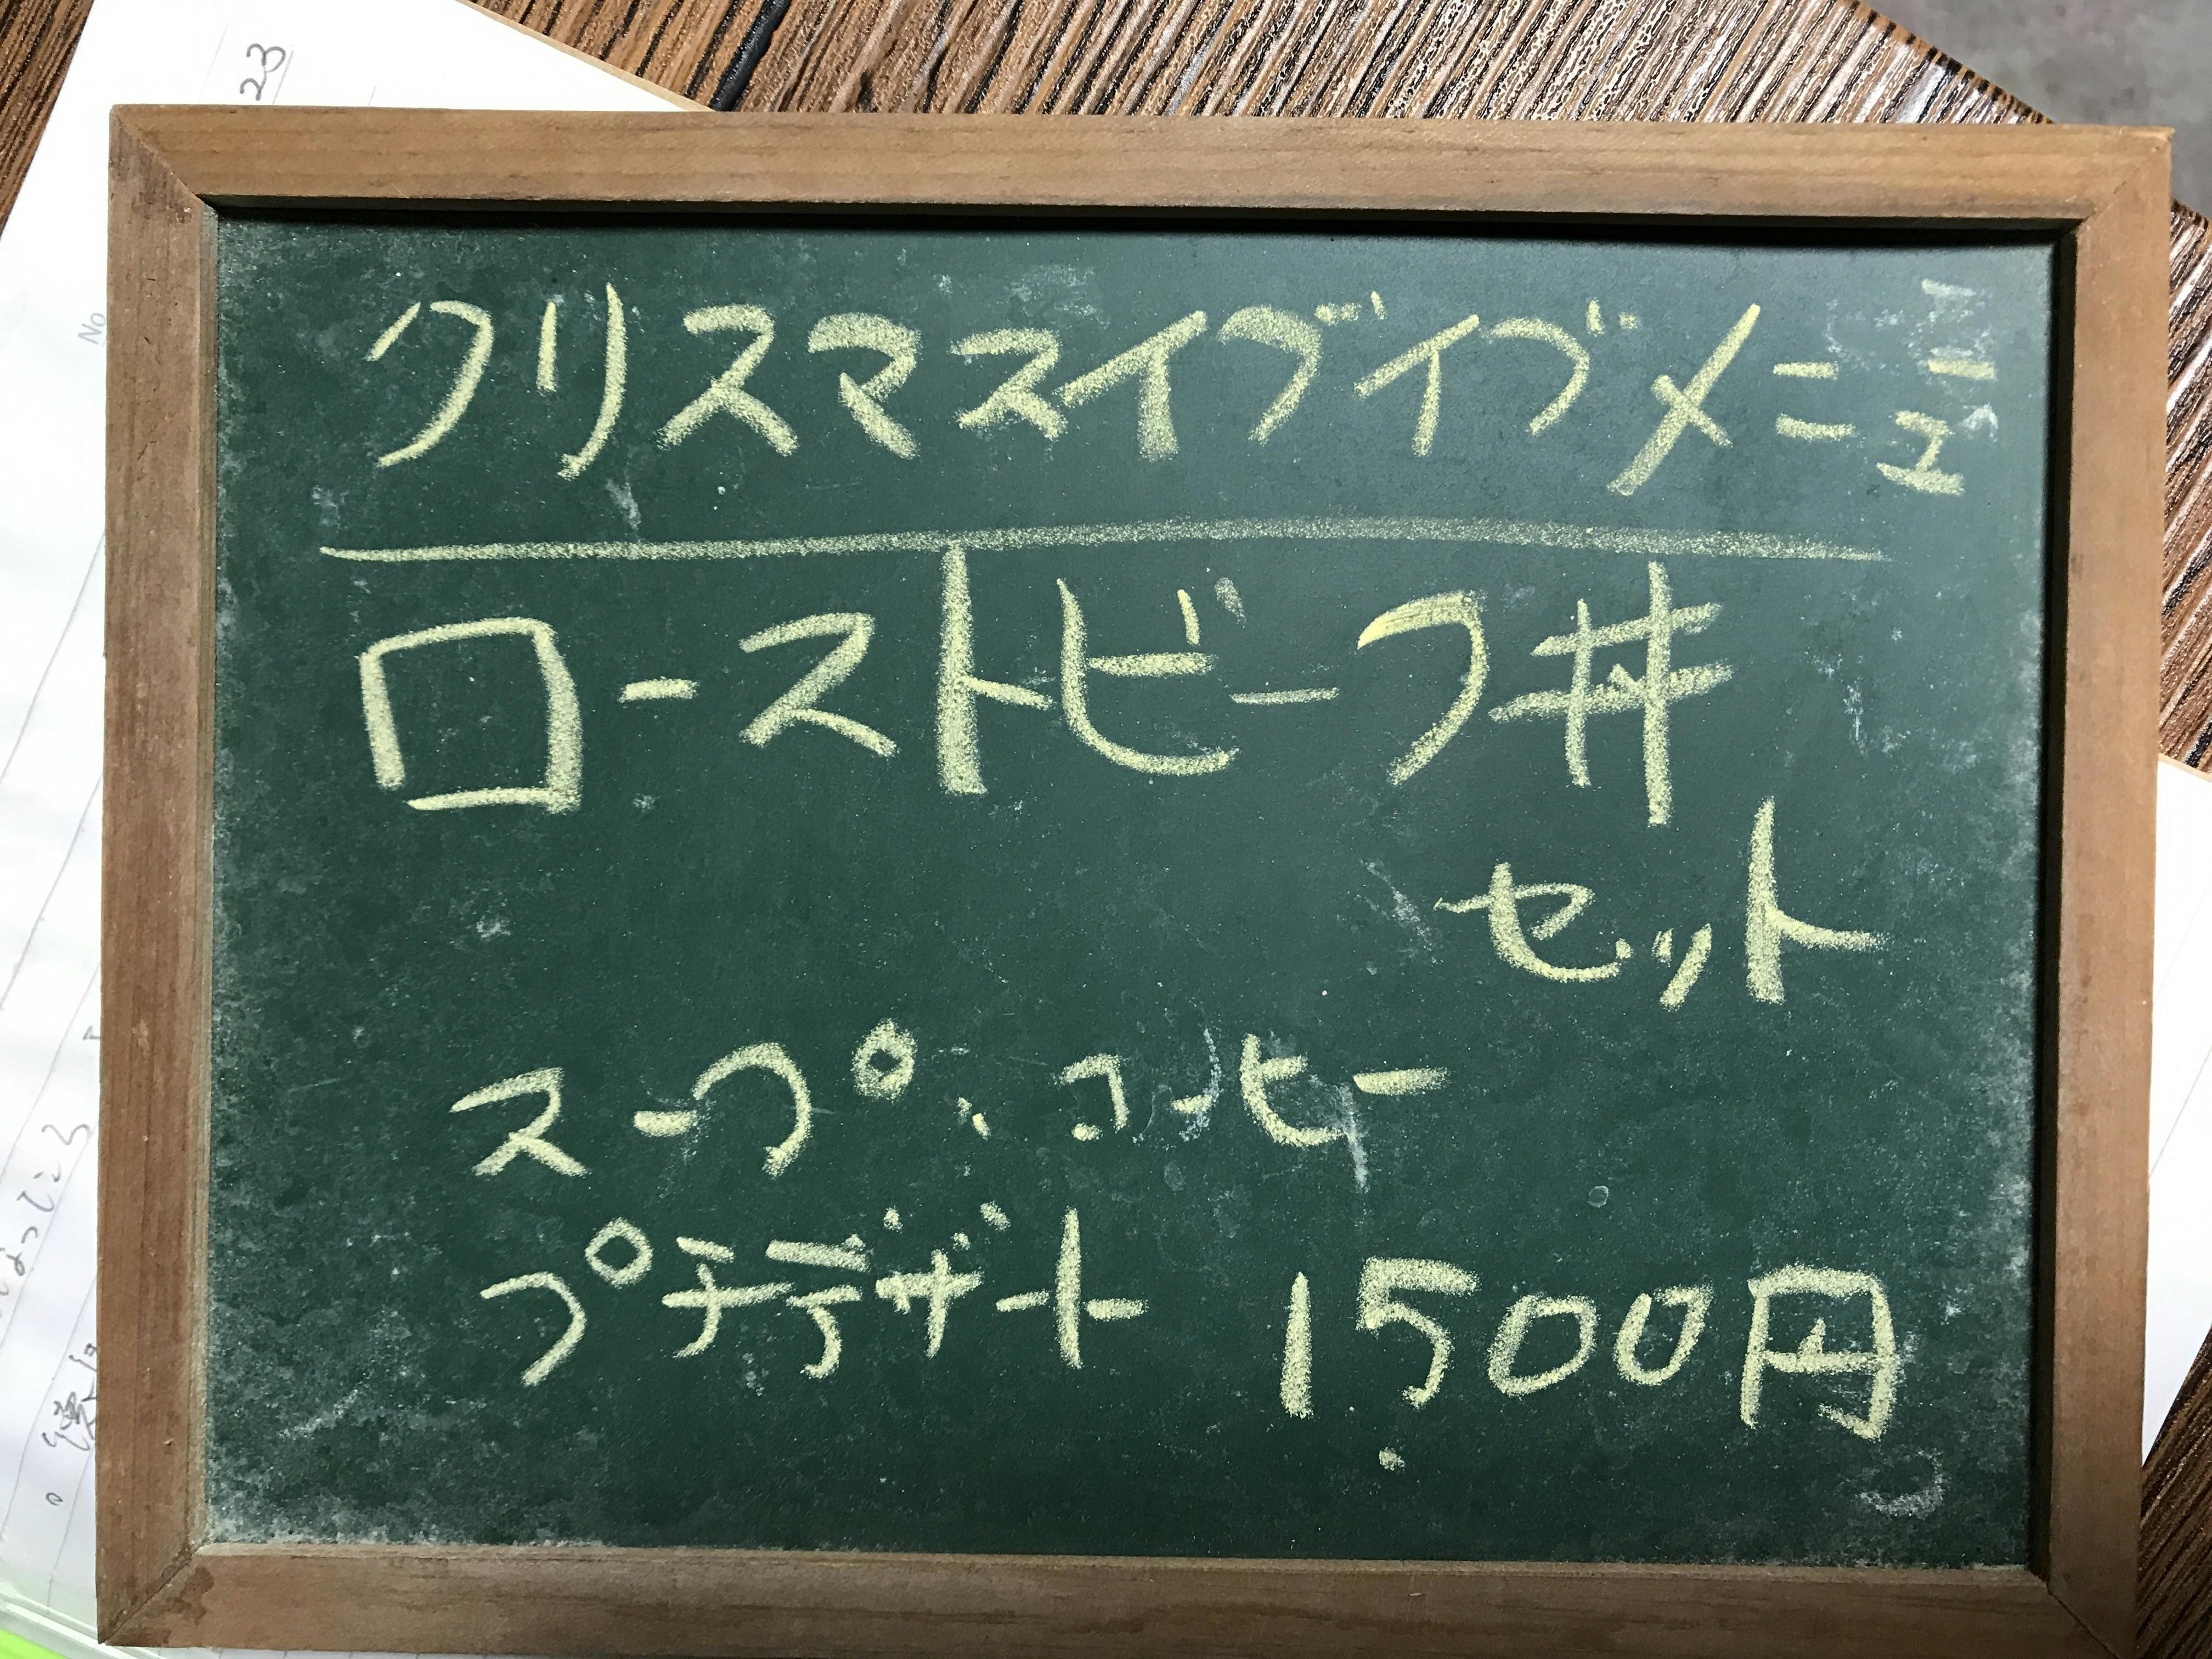 クリスマスイブイブメニュー
ローストビーフ丼
セット
スープ、コーヒー
プチデザート 1500円
23
No